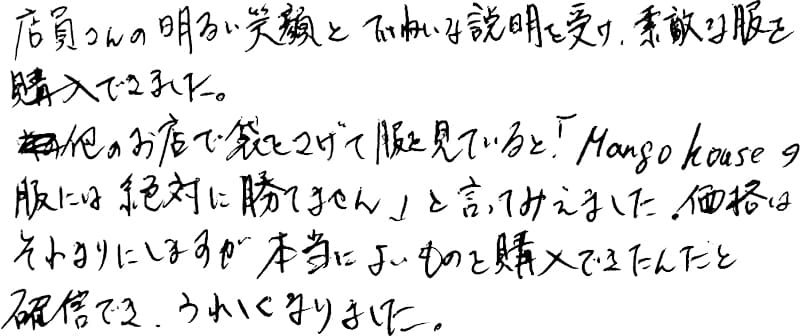 店員さんの明るい笑顔とていねいな説明を受け、素敵な服を
購入できました。
他のお店で袋をさげて服を見ていると、「Mango houseの
服には絶対に勝てません」と言ってみえました。価格は
それなりにしますが本当によいものを購入できたんだと
確信でき、うれしくなりました。